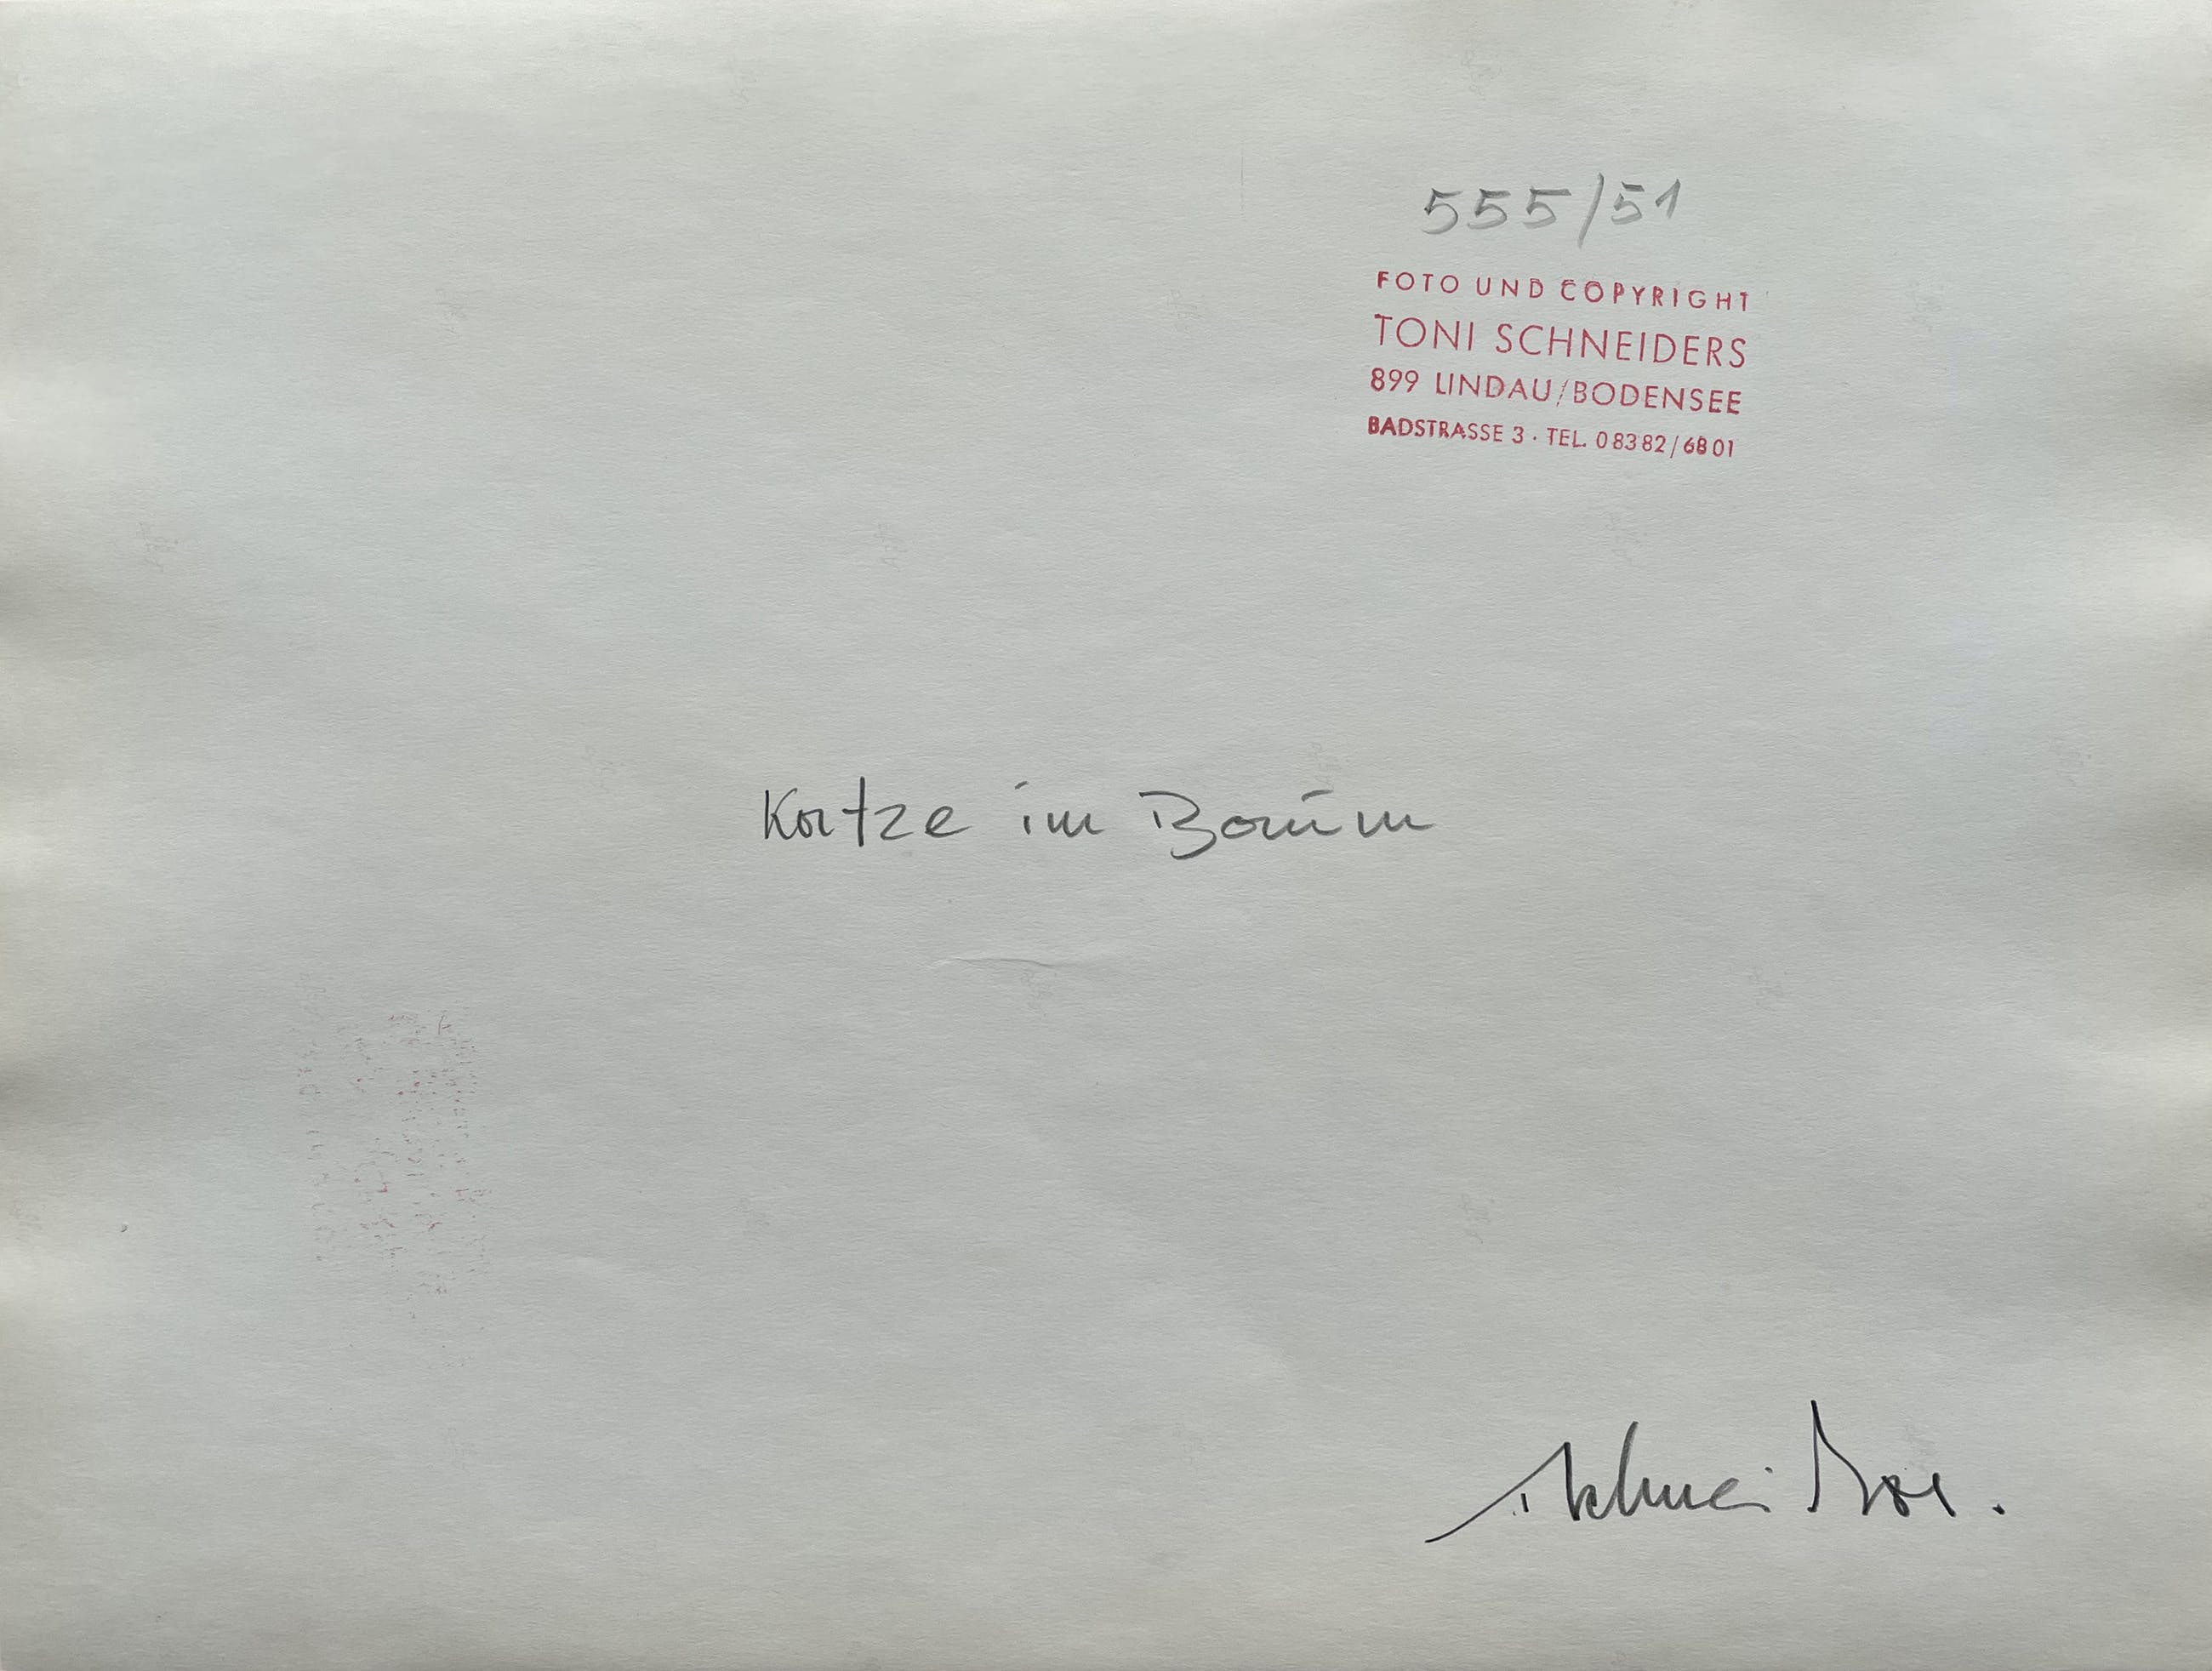 555/51
FOTO UND COPYRIGHT
TONI SCHNEIDERS
899 LINDAU/BODENSEE
BADSTRASSE 3 · TEL. 08382/6801
Katze im Baum
Schneiders.